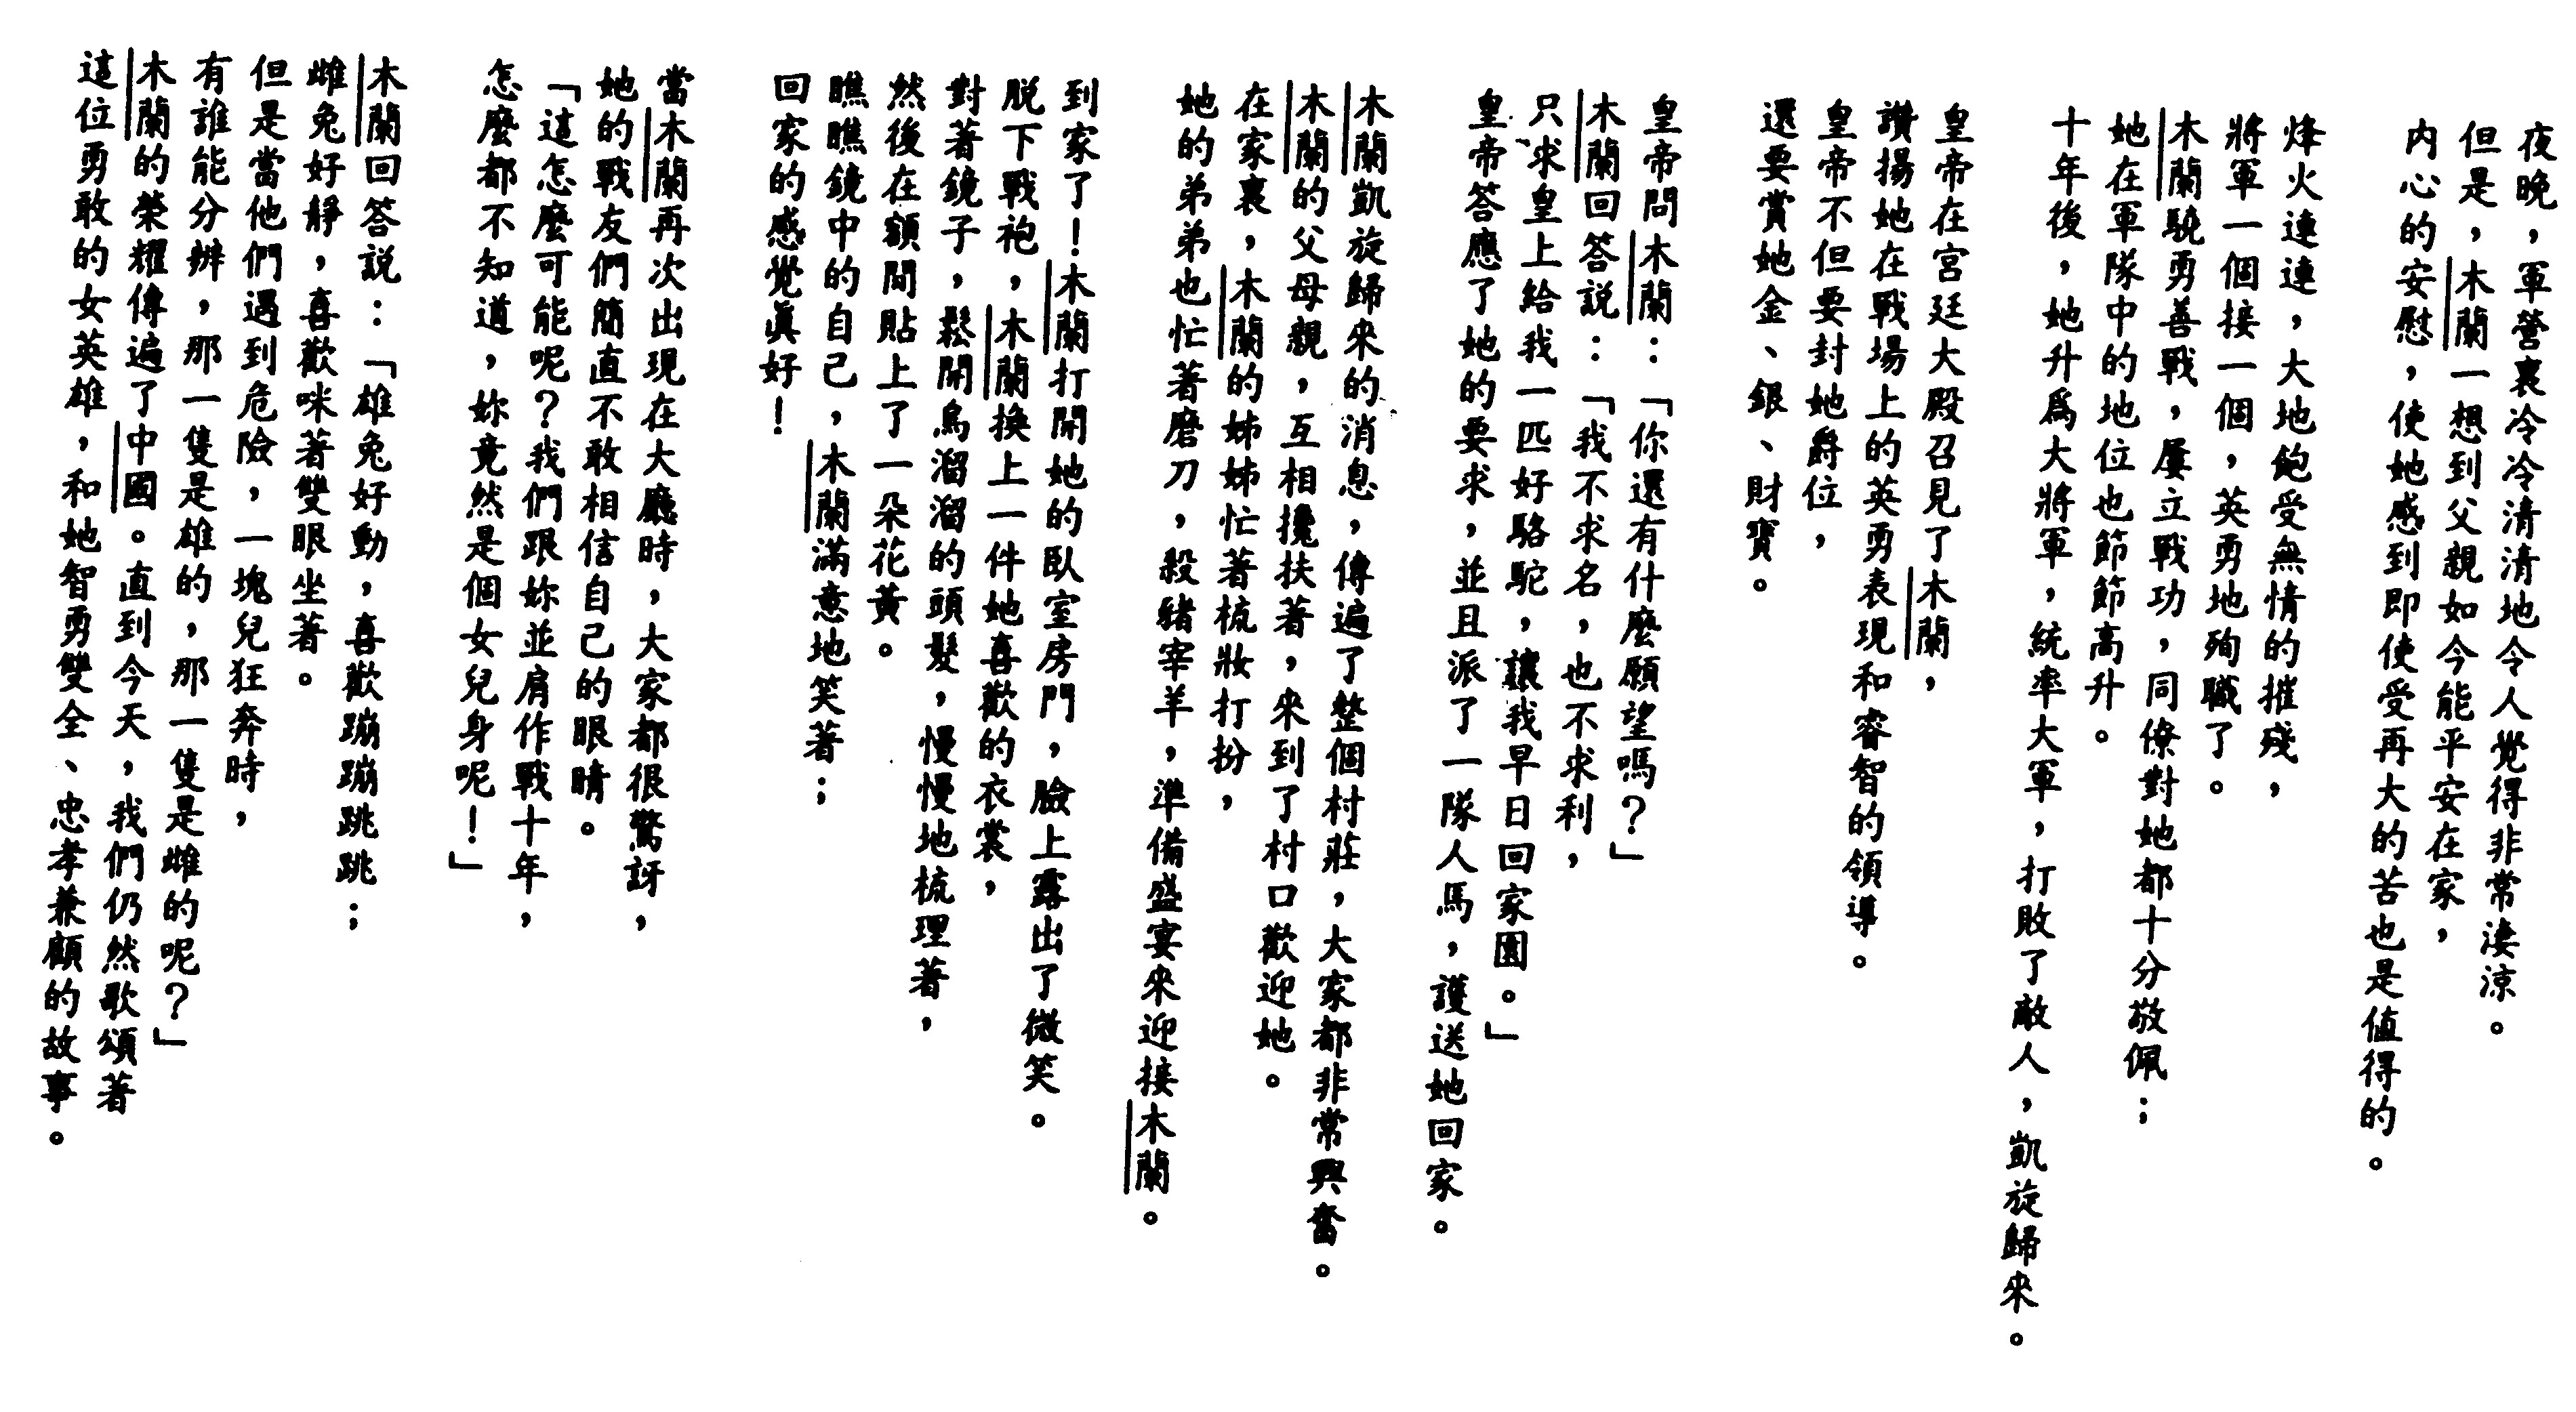 夜晚，軍營裏冷冷清清地令人覺得非常淒涼。
但是，木蘭一想到父親如今能平安在家，
内心的安慰，使她感到即使受再大的苦也是值得的。
烽火連連，大地飽受無情的摧殘，
將軍一個接一個，英勇地殉職了。
木蘭驍勇善戰，屢立戰功，同僚對她都十分敬佩；
她在軍隊中的地位也節節高升。
十年後，她升爲大將軍，統率大軍，打敗了敵人，凱旋歸來。
皇帝在宮廷大殿召見了木蘭，
讚揚她在戰場上的英勇表現和睿智的領導。
皇帝不但要封她爵位，
還要賞她金、銀、財寶。
皇帝問木蘭：「你還有什麼願望嗎？」
木蘭回答説：「我不求名，也不求利，
只求皇上給我一匹好駱駝，讓我早日回家園。」
皇帝答應了她的要求，並且派了一隊人馬，護送她回家。
木蘭凱旋歸來的消息，傳遍了整個村莊，大家都非常興奮。
木蘭的父母親，互相攙扶著，來到了村口歡迎她。
在家裏，木蘭的姊姊忙著梳妝打扮，
她的弟弟也忙著磨刀，殺豬宰羊，準備盛宴來迎接木蘭。
到家了！木蘭打開她的臥室房門，臉上露出了微笑。
脱下戰袍，木蘭換上一件她喜歡的衣裳，
對著鏡子，鬆開烏溜溜的頭髮，慢慢地梳理著，
然後在額間貼上了一朵花黃。
瞧瞧鏡中的自己，木蘭滿意地笑著；
回家的感覺眞好！
當木蘭再次出現在大廳時，大家都很驚訝，
她的戰友們簡直不敢相信自己的眼睛。
「這怎麼可能呢？我們跟妳並肩作戰十年，
怎麼都不知道，妳竟然是個女兒身呢！」
木蘭回答説：「雄兔好動，喜歡蹦蹦跳跳；
雌兔好靜，喜歡咪著雙眼坐著。
但是當他們遇到危險，一塊兒狂奔時，
有誰能分辨，那一隻是雄的，那一隻是雌的呢？」
木蘭的榮耀傳遍了中國。直到今天，我們仍然歌頌著
這位勇敢的女英雄，和她智勇雙全、忠孝兼顧的故事。